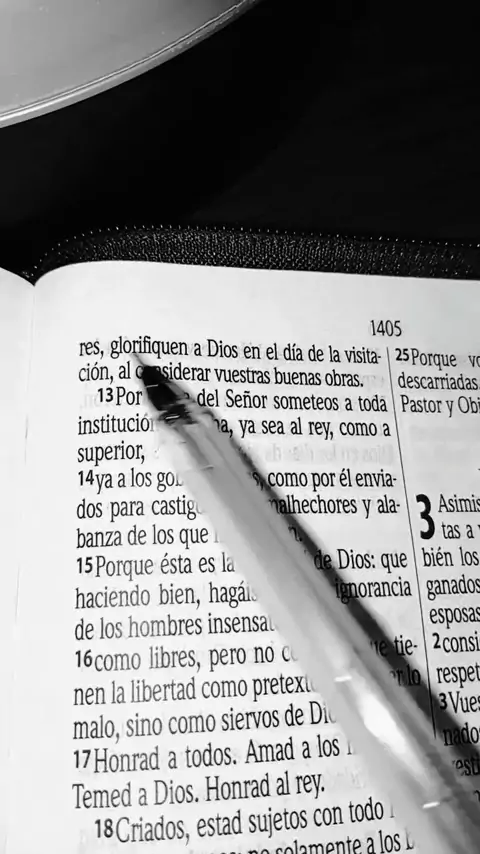 1405
res, glorifiquen a Dios en el día de la visita-
ción, al considerar vuestras buenas obras.
13Por del Señor someteos a toda
institución ya sea al rey, como a
superior,
14ya a los como por él envia-
dos para malhechores y ala-
banza de los que
15Porque ésta es la de Dios: que
haciendo bien, ignorancia
de los hombres
16como libres, pero no tie-
nen la libertad como lo
malo, sino como siervos de
17Honrad a todos. Amad a los
Temed a Dios. Honrad al rey.
18Criados, estad sujetos con todo
solamente a los
25Porque
descarriadas
Pastor y
3
bién los
ganados
esposas
2
3